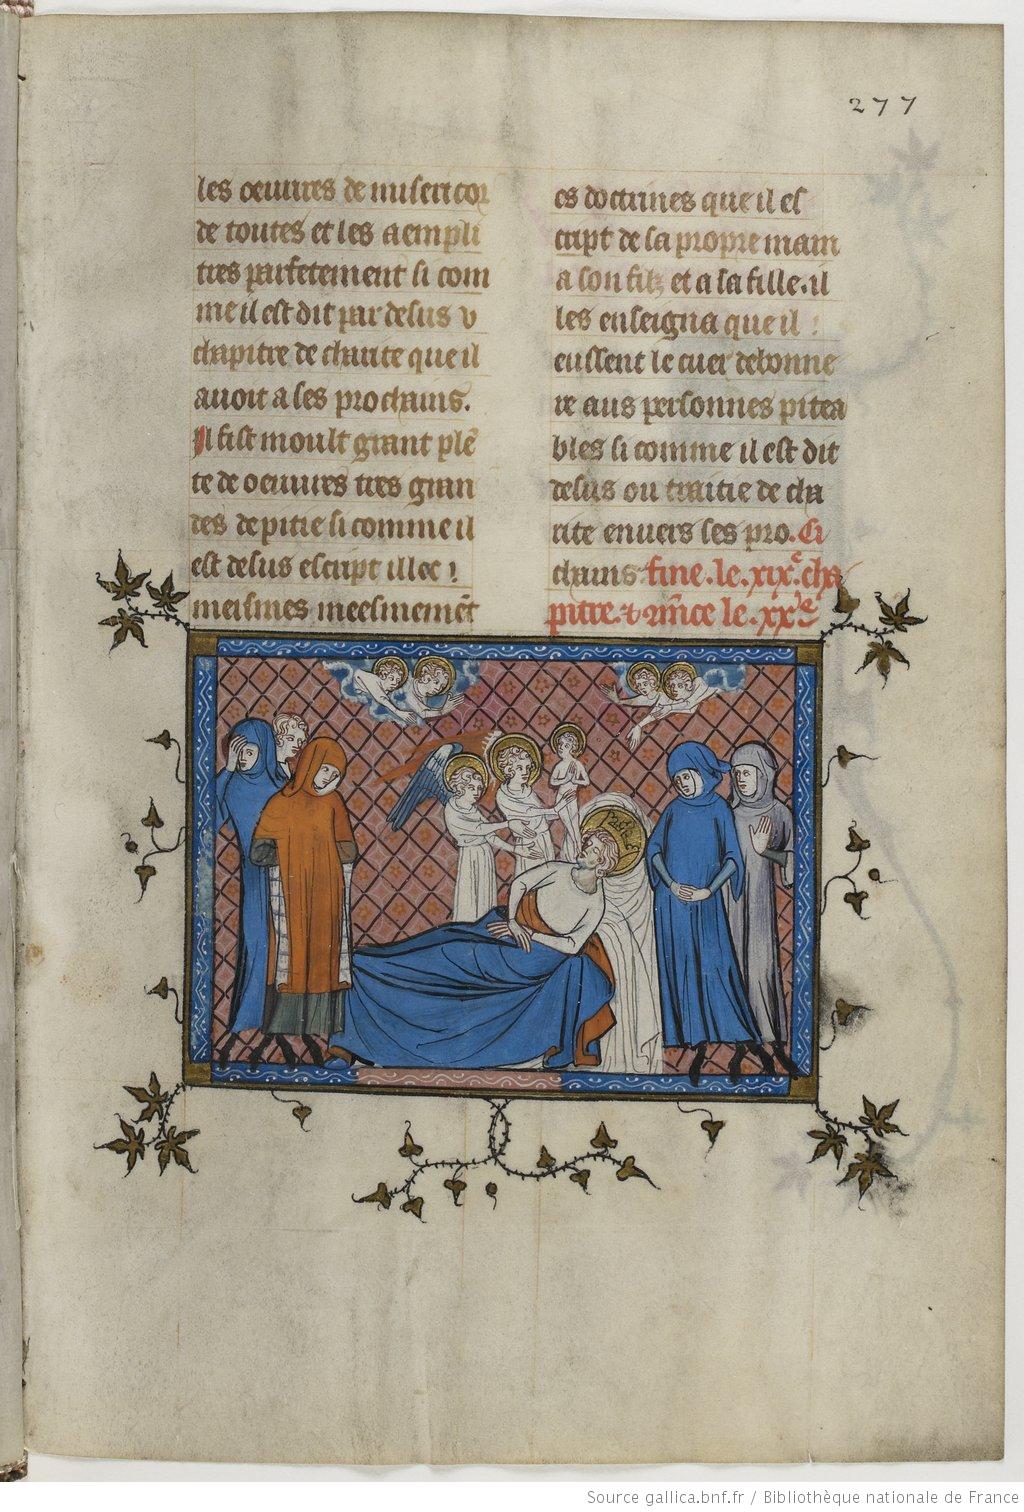 277
les oeuures de misericor
de toutes et les aempli
tres parfetement si com
me il est dit par desus v
chapitre de charite que il
auoit a ses prochains.
Il fist moult grant plē
te de oeuures tres gran
des de pitie si comme il
est desus escript illec !
meismes meesmemēt
es doctrines que il es
cript de sa propre main
a son filz et a sa fille. il
les enseigna que il !
eussent le cuer debonne
re aus personnes pitea
bles si comme il est dit
desus ou traitie de cha
rite enuers ses pro. Ci
chains. fine. le. xix.e cha
pitre. le. xx.e
Source gallica.bnf.fr / Bibliothèque nationale de France